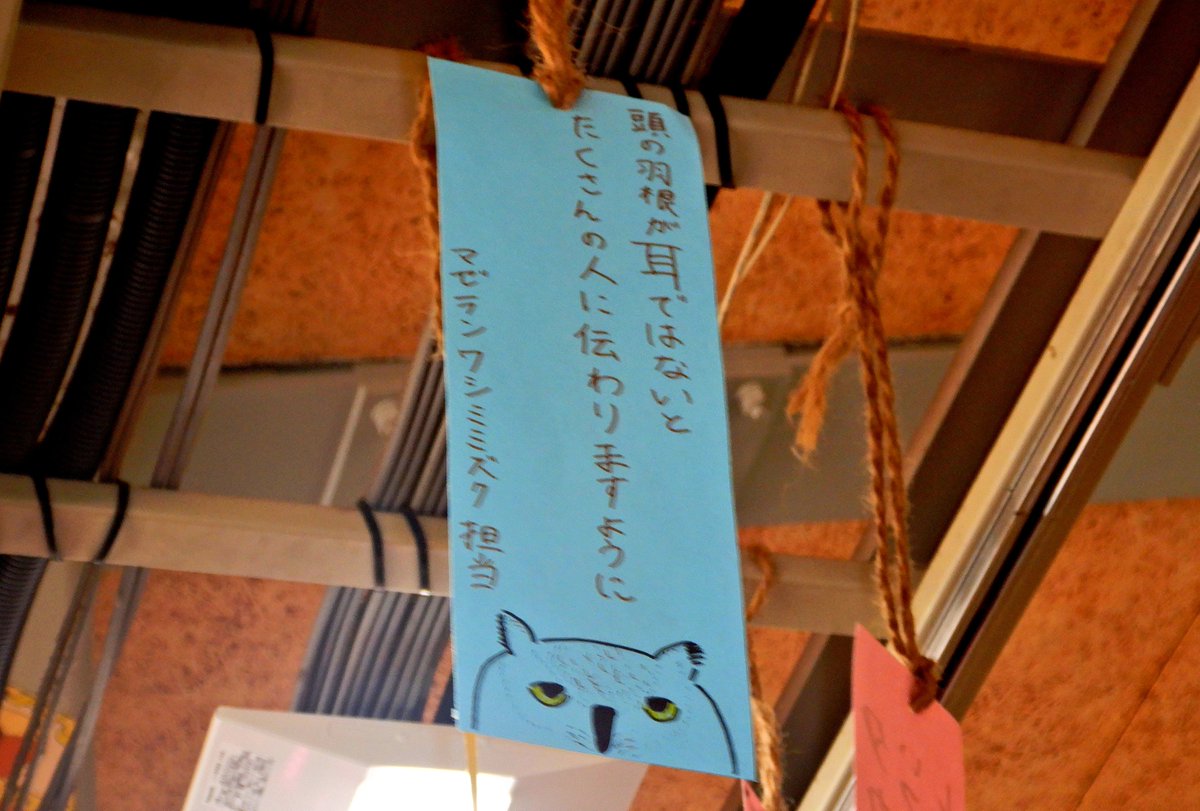 頭の羽根が耳ではないと
たくさんの人に伝わりますように
マゼランワシミミズク 担当